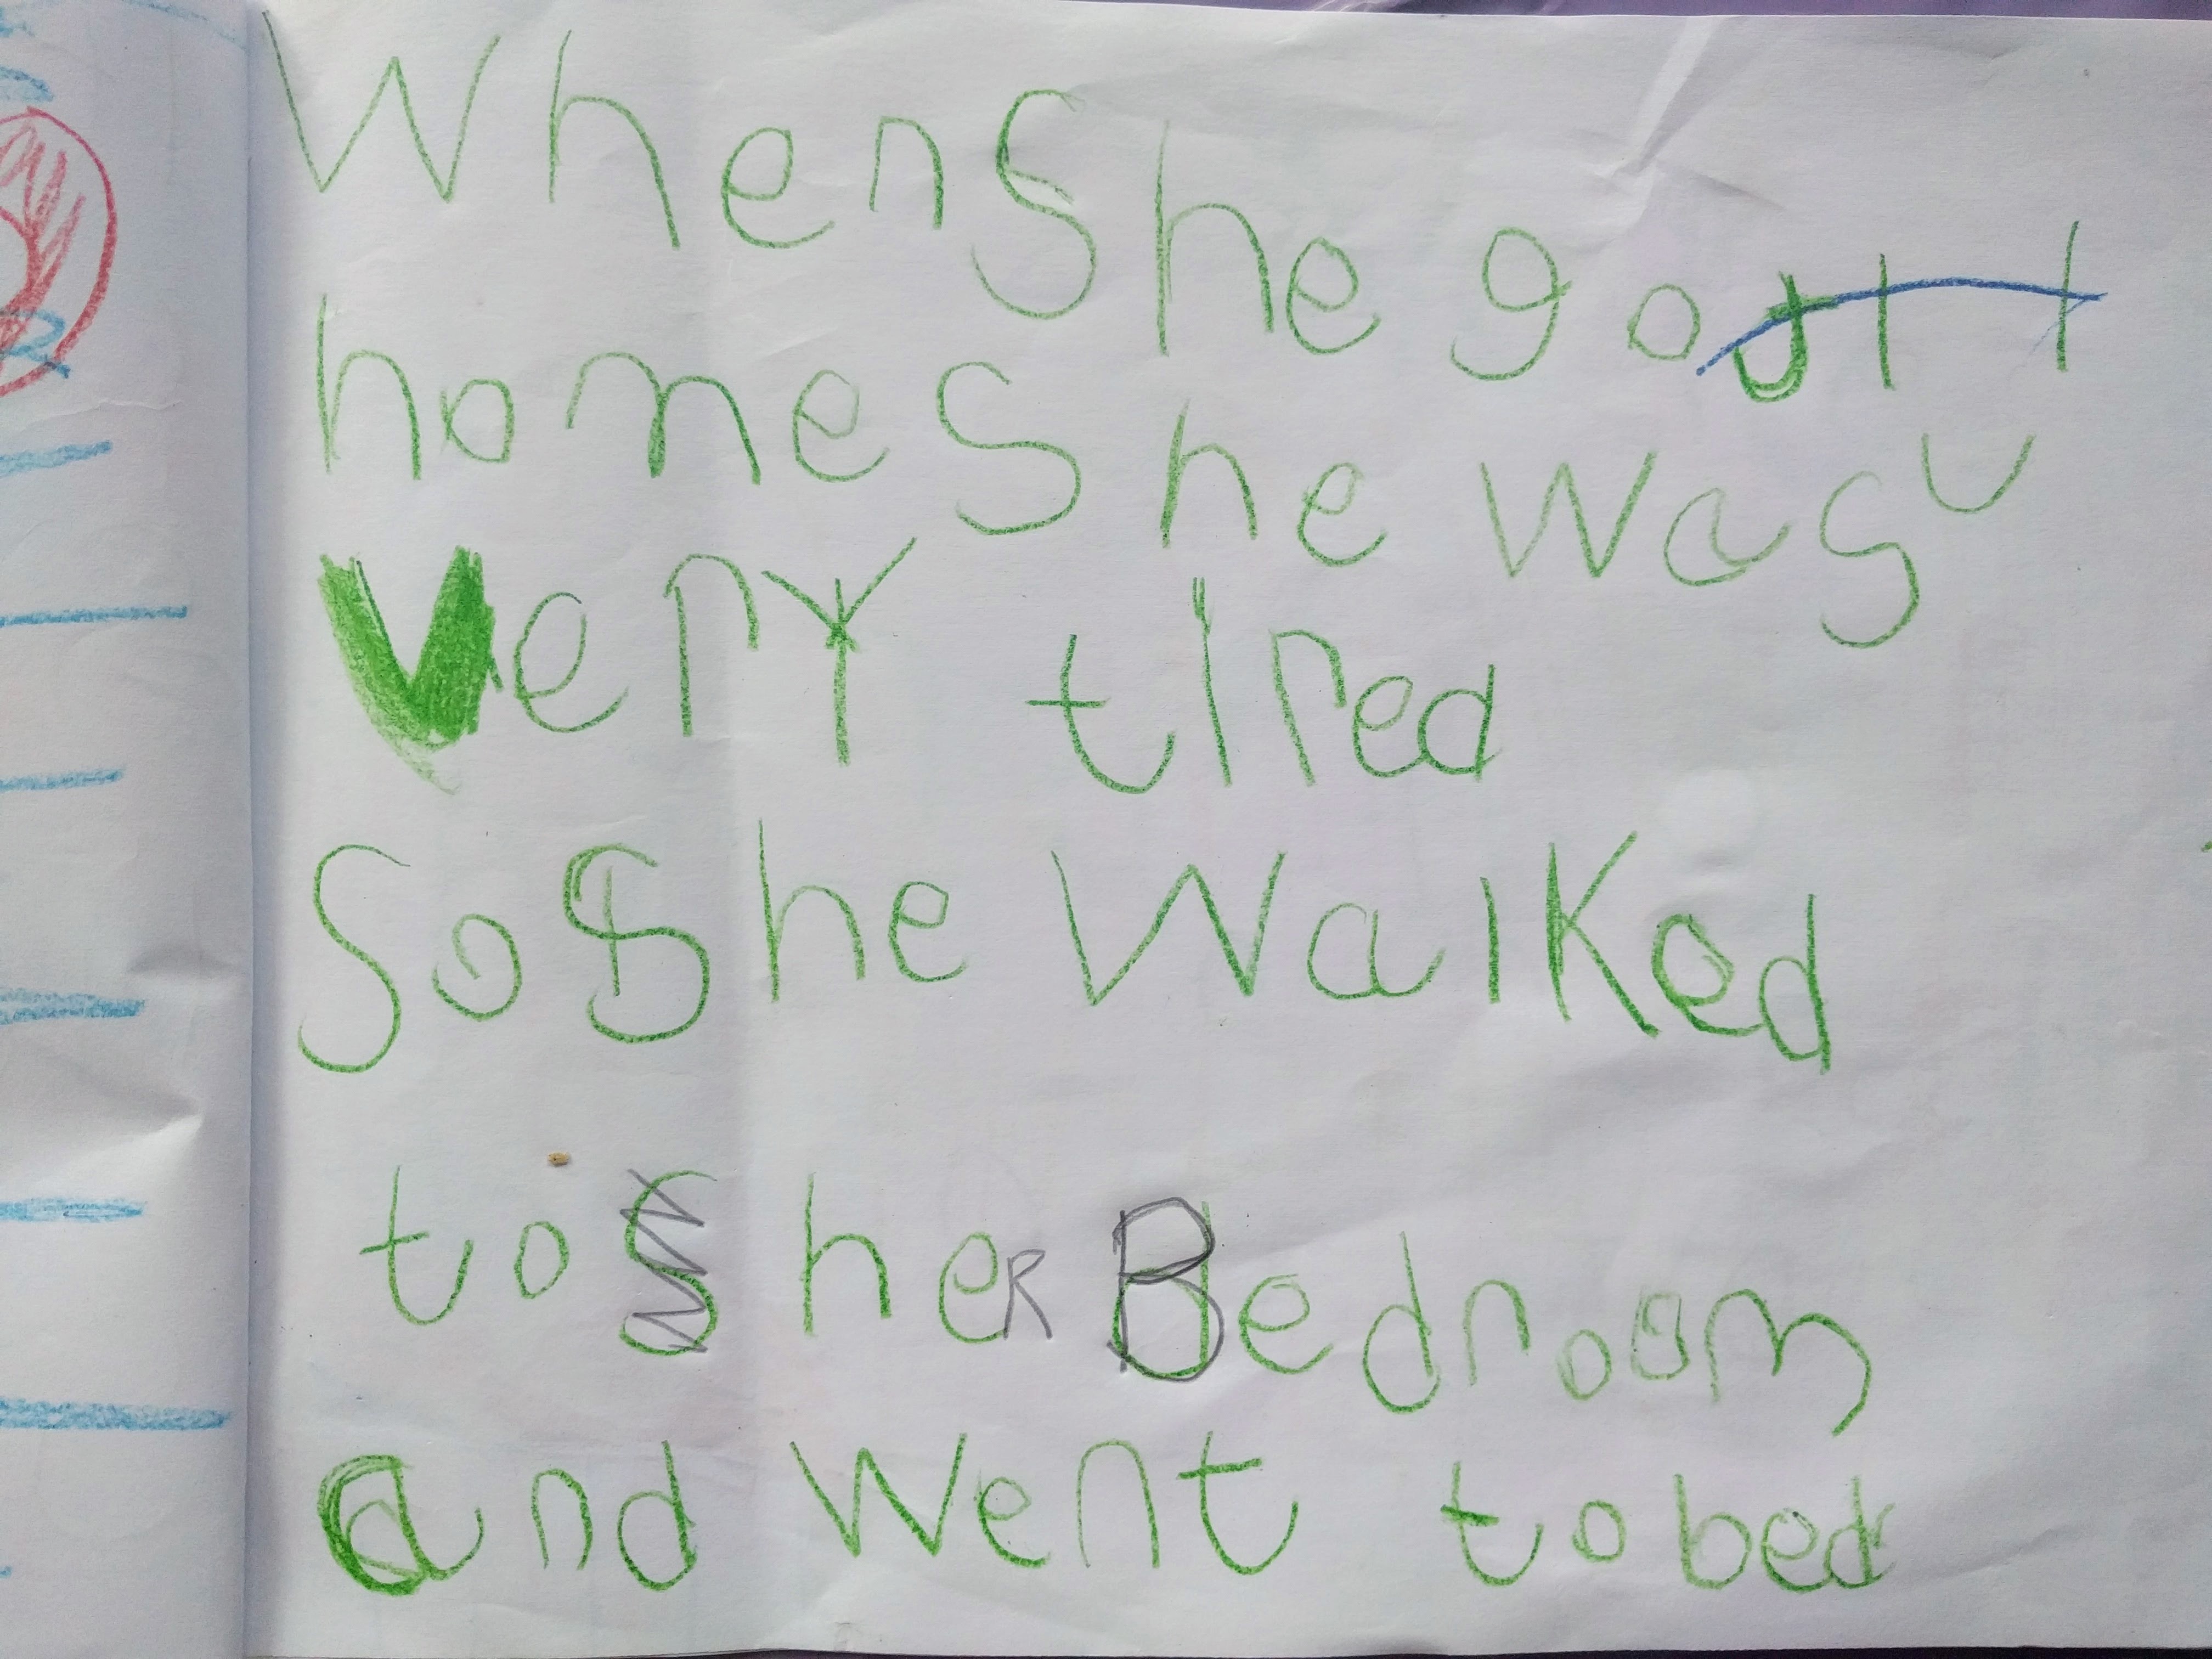 When She gott
home She was
very tired
So She Walked
to her Bedroom
and went to bed